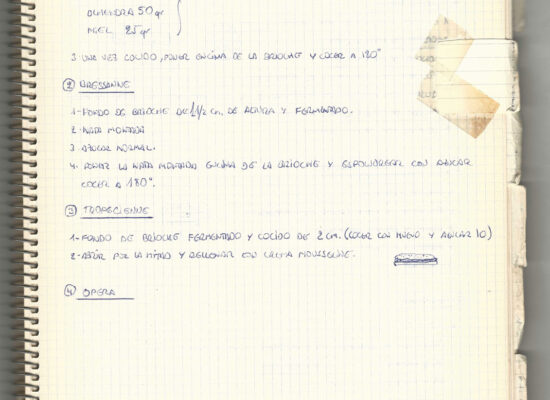 ALMENDRA 50 gr
MIEL 25 gr
3 UNA VEZ COCIDO, PONER ENCIMA DE LA BRIOCHE Y COCER A 180°
② BRESSANNE
1-FONDO DE BRIOCHE DE 1 1/2 CM. DE ALTURA Y FERMENTADO.
2-NATA MONTADA
3-AZUCAR NORMAL.
4-PONER LA NATA MONTADA ENCIMA DE LA BRIOCHE Y ESPOLVOREAR CON AZUCAR
COCER A 180°.
③ TROPECIENNE
1-FONDO DE BRIOCHE FERMENTADO Y COCIDO DE 2 CM. (COCER CON HUEVO Y AZUCAR 10)
2-ABRIR POR LA MITAD Y RELLENAR CON CREMA MOUSSELINE.
④ OPERA